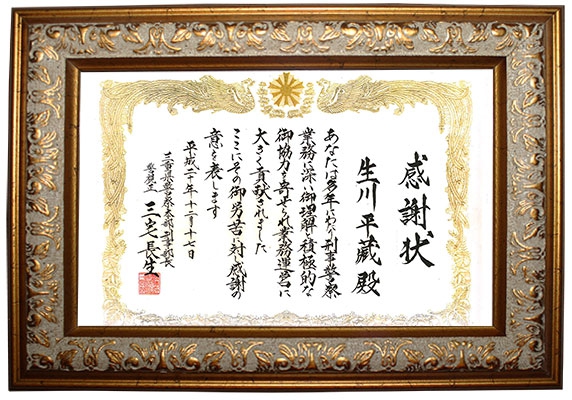 感謝状
生川平蔵殿
あなたは多年にわたり刑事警察
業務に深い御理解と積極的な
御協力を寄せられ業務運営に
大きく貢献されました
ここにその御労苦に対し感謝の
意を表します
平成二十年十二月十七日
三重県警察本部刑事部長
警視正 三宅長生